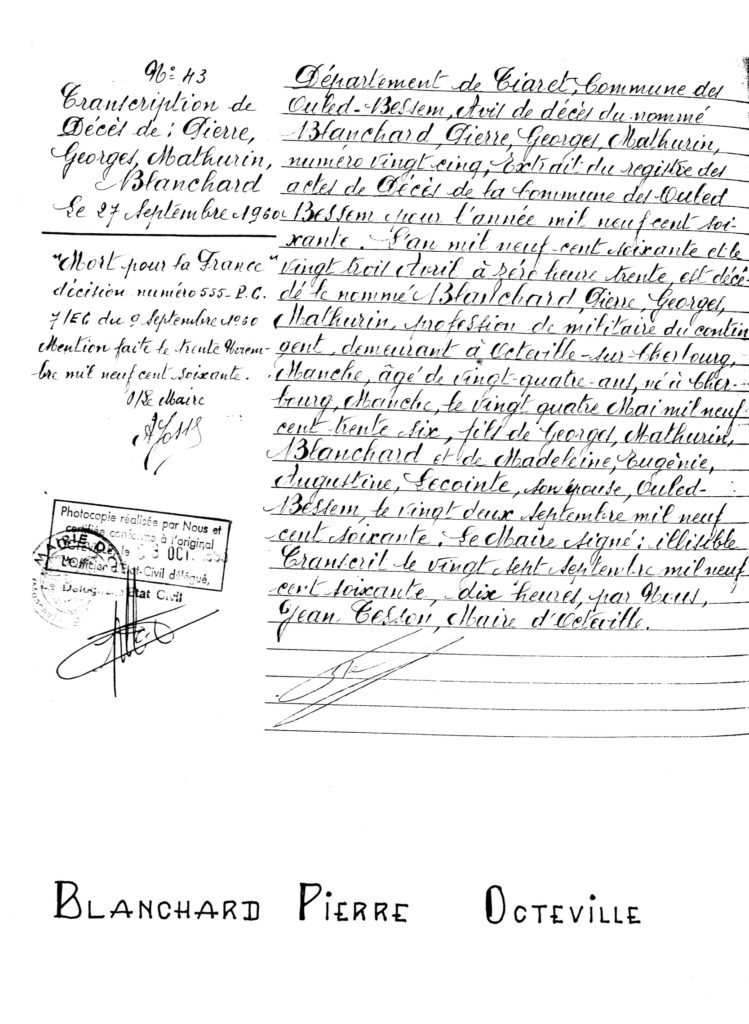 N° 43
Transcription de
Décès de : Pierre,
Georges, Mathurin,
Blanchard
Le 27 Septembre 1960
"Mort pour la France"
décision numéro 555-P.C.
7/EG du 9 Septembre 1960
Mention faite le trente Novem-
bre mil neuf cent soixante.
P/Le Maire
Département de Tiaret, Commune des
Ouled-Bessem, Avis de décès du nommé
Blanchard, Pierre, Georges, Mathurin,
numéro vingt cinq, Extrait du registre des
actes de Décès de la Commune des Ouled
Bessem pour l'année mil neuf cent soi-
xante. L'an mil neuf cent soixante et le
vingt trois Avril à zéro heure trente, est décé-
dé le nommé Blanchard, Pierre, Georges,
Mathurin, profession de militaire du contin
gent, demeurant à Octeville-sur-Cherbourg,
Manche, âgé de vingt-quatre-ans, né à Cher-
bourg, Manche, le vingt quatre Mai mil neuf
cent trente six, fils de Georges, Mathurin,
Blanchard et de Madeleine, Eugénie,
Augustine, Lecointe, son épouse, Ouled-
Bessem, le vingt deux Septembre mil neuf
cent soixante. Le Maire signé : illisible
Transcrit le vingt sept Septembre mil neuf
cent soixante, dix heures, par Nous,
Jean Tesson, Maire d'Octeville.
Photocopie réalisée par Nous et
certifiée conforme à l'original
le 3 OCT.
L'Officier d'Etat-Civil délégué,
MAIRIE D'
Etat Civil
BLANCHARD PIERRE OCTEVILLE